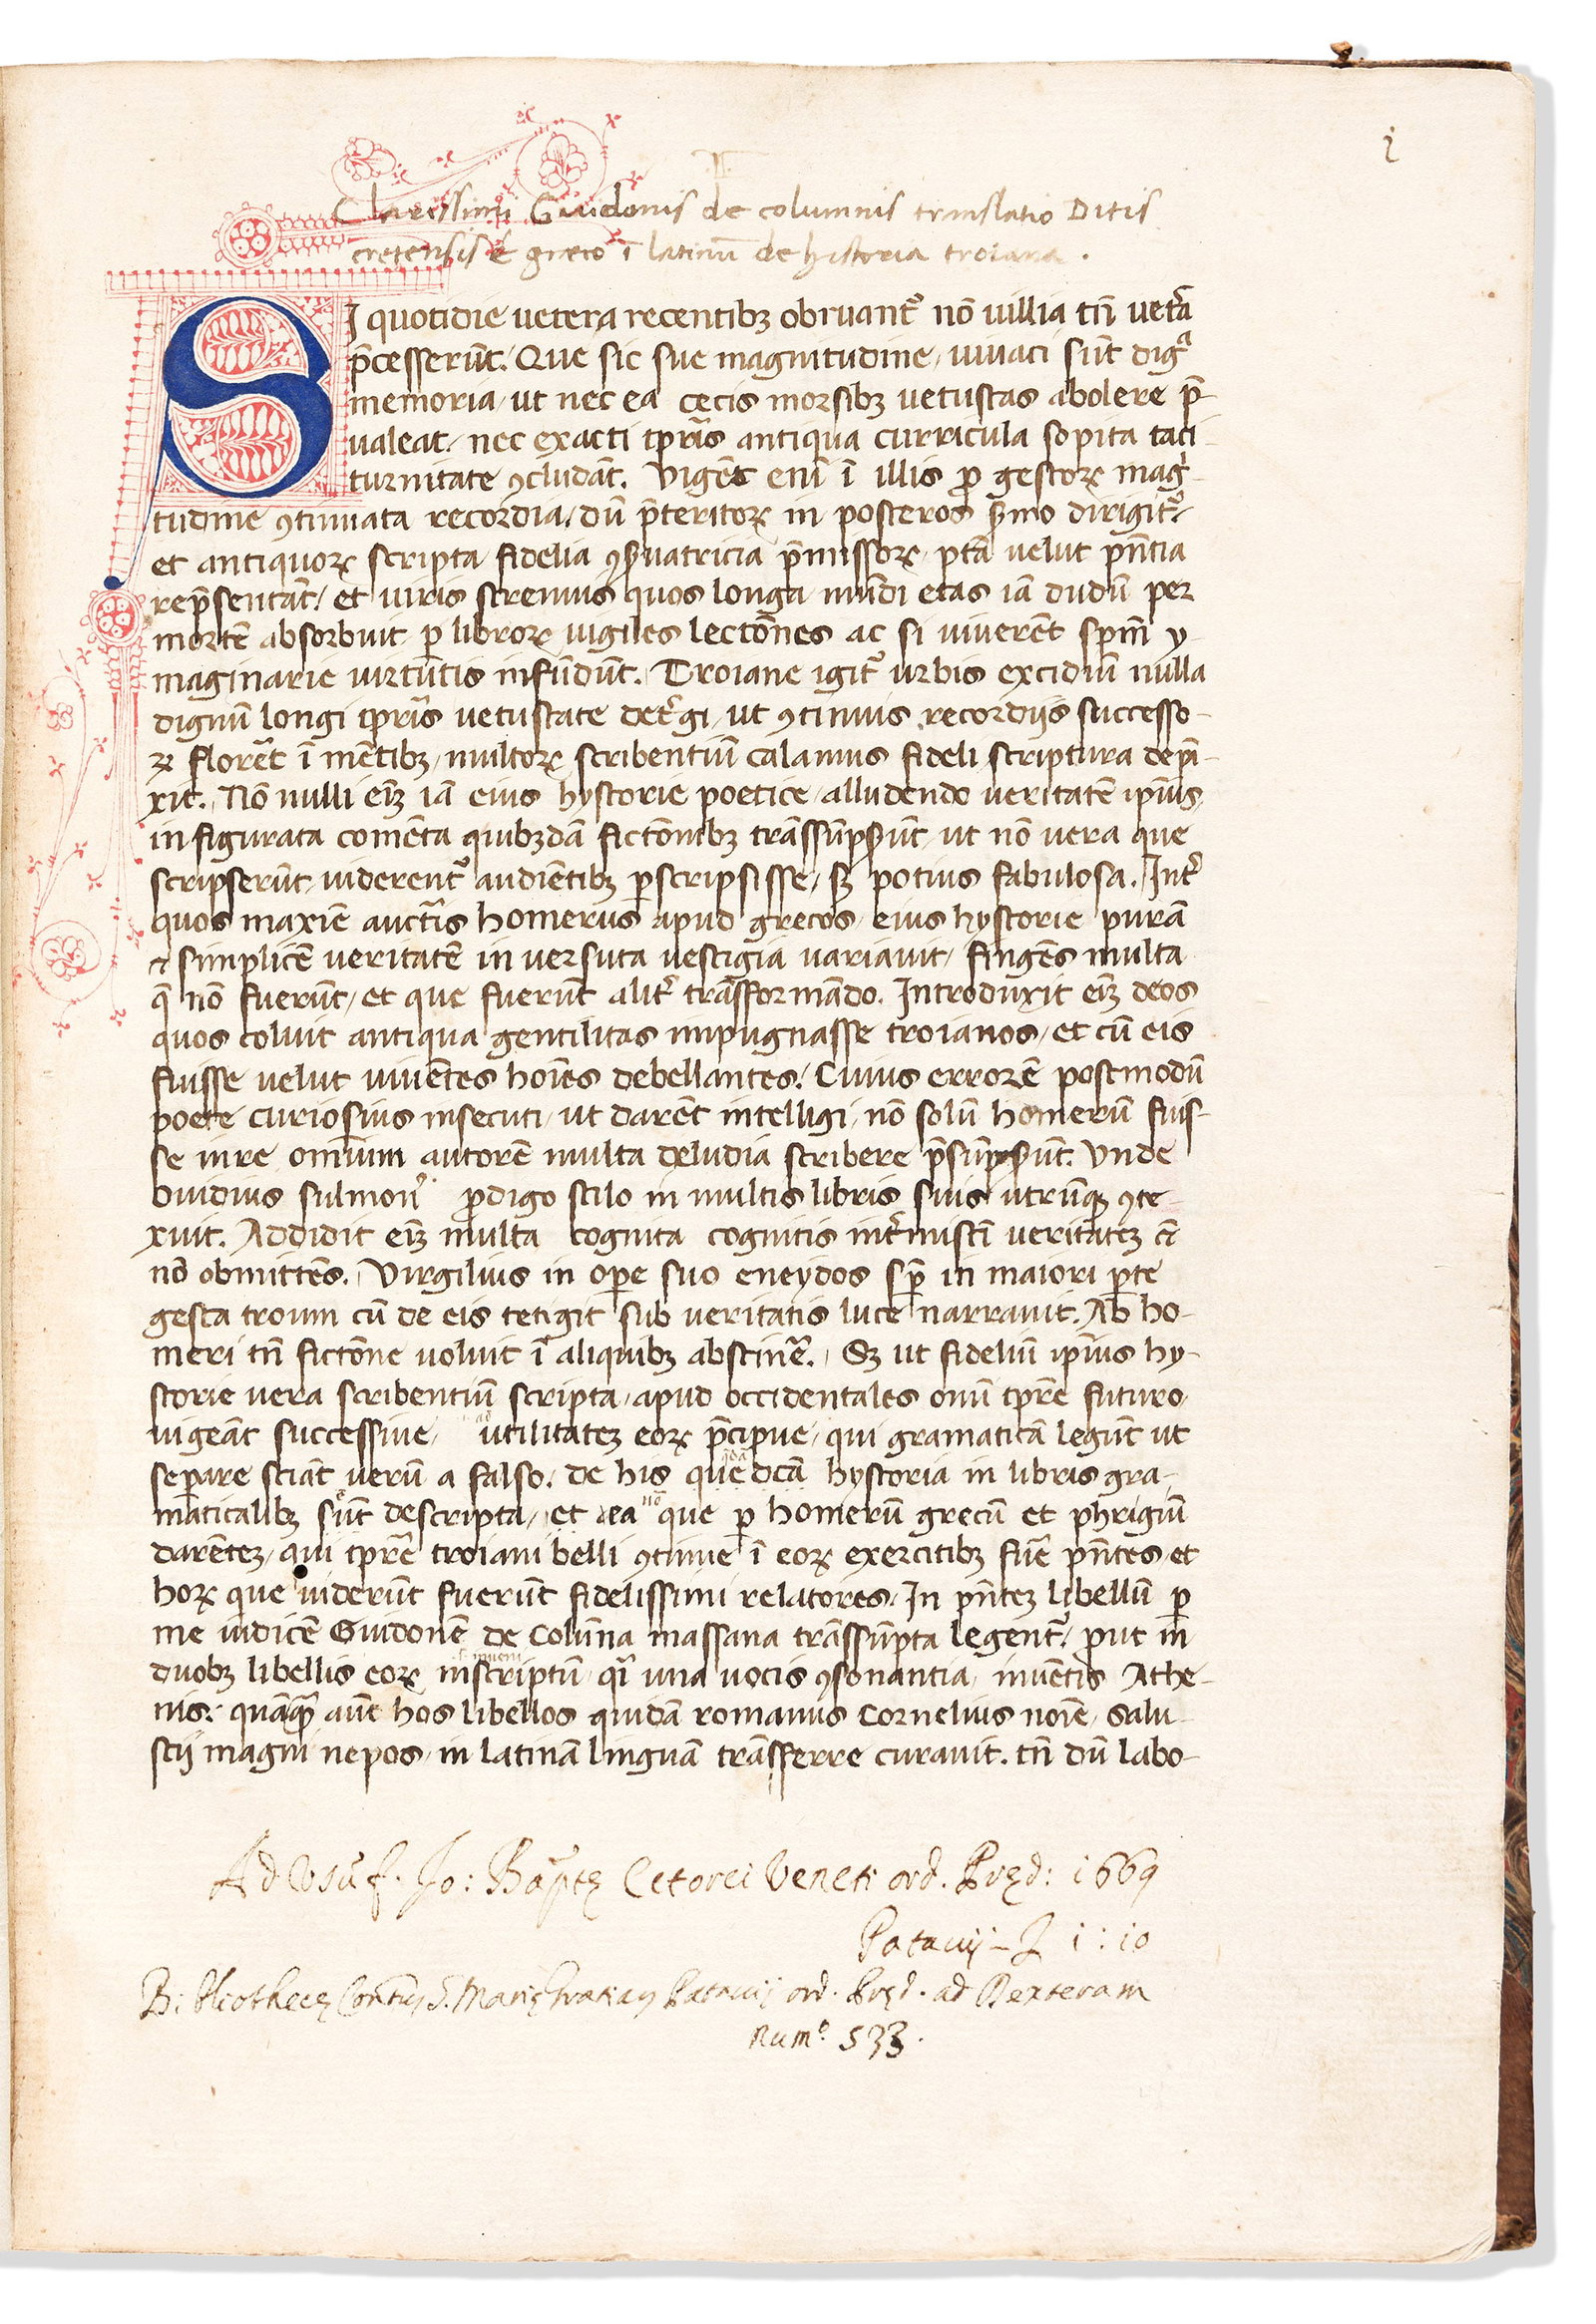 i
Clarissimi Guidonis de columnis translatio Ditis
cretensis è graeco ī latinū de historia troiana.
SI quotidie vetera recentibꝫ obruant᷑ nō nillia tn̄ vet̄a
p̄cesserūt. Que sic sue magnitudine, uiuaci sūt digͣ
memoria, ut nec ea cecis morsibꝫ vetustas abolere p̄-
ualeat, nec exacti tꝑis antiqua curricula sopita taci-
turnitate ꝯcludāt. Vigēt enī ī illis ꝓ gestoꝝ magͥ-
tudine ꝯtinuata recordia, dū p̄teritoꝝ in posteros s̄mo dirigit᷑,
et antiquoꝝ scripta fidelia ꝯs̄uatricia p̄missoꝝ, pt̄a velut pn̄tia
rep̄sentāt, et uiris strenuis quos longa mūdi etas iā dudū per
mortē absorbuit ꝑ libroꝝ uigiles lectōnes ac si uiuerēt spm̄ y-
maginarie uirtūtis infūdūt. Troiane igit᷑ urbis excidiū nulla
dignū longi tꝑis vetustate det̓gi, ut ꝯtinuis recordijs successo-
ꝝ florēat ī mētibꝫ, multoꝝ scribentiū calamus fideli scriptura depī-
xit. Nō nulli eīꝫ iā eius hystorie poetice, alludendo ueritatē ipīus,
in figurata comēta quibꝫdā fictōnibꝫ trāssūps̄ūt, ut nō vera que
scripserūt, uiderent᷑ audiētibꝫ ꝑscripsisse, sꝫ potius fabulosa. Int̓
quos maxīe auct̄is homerus apud grecos, eius hystorie purā
⁊ simplicē veritatē in versuta vestigia variauit, fingēs multa
q̄ nō fuerūt, et que fuerūt alit̓ trāsformādo. Introduxit eīꝫ deos
quos coluit antiqua gentilitas impugnasse troianos, et cū eis
fuisse velut uiuētes hoīes debellantes. Cuius errorē postmodū
poete curiosius insecuti, ut darēt intelligi, nō solū homerū fuis-
se in re omnium autorē multa deludia scribere p̄sūps̄ūt. Vnde
Ouidius sulmon̓ ꝓdigo stilo in multis libris suis utrūqꝫ ꝯte-
xuit. Addidit eīꝫ multa cognita cognitis int̓mistī veritatēꝫ ēt
nō obmittēs. Virgilius in oꝑe suo eneydos sp̄ in maiori ꝑte
gesta troum cū de eis tetigit sub veritatis luce narrauit. Ab ho-
meri tn̄ fictōne uoluit ī aliquibꝫ abstinēͬ. Sꝫ ut fideliū ipīus hy-
storie vera scribentiū scripta, apud occidentales omī tꝑe futuro
uigeāt successiue, ad utilitatēꝫ eoꝝ p̄cipue, qui gramaticā legūt ut
seꝑare sciāt verū a falso, de his que dcā hystoria in libris gra-
maticalibꝫ sūt descripta, et ea nō que ꝑ homerū grecū et phrigiū
darētēꝫ, qui tꝑe troiani belli ꝯtinue ī eoꝝ exercitibꝫ fuē pn̄tes, et
hoꝝ que uiderūt fuerūt fidelissimi relatores, In pn̄tēꝫ libellū ꝑ
me iudicē Guidonē de Colūna massana trāssūpta legent᷑, ꝓut in
inueni
duobꝫ libellis eoꝝ inscriptū, qͣi una uocis ꝯsonantia, inuētis Athe-
nis. quāqͣ aūt hos libellos quidā romanus Cornelius noīe, Salu-
stij magni nepos, in latinā linguā trāsferre curauit. tn̄ dū labo-
Ad Vsū f. Jo: Bāptę Cetorei Veneti ord. Pręd: 1669
Patauij
Bibliothecę Conūtus S. Marię Patauij ord. Pręd. ad Dexteram
Numº 533.